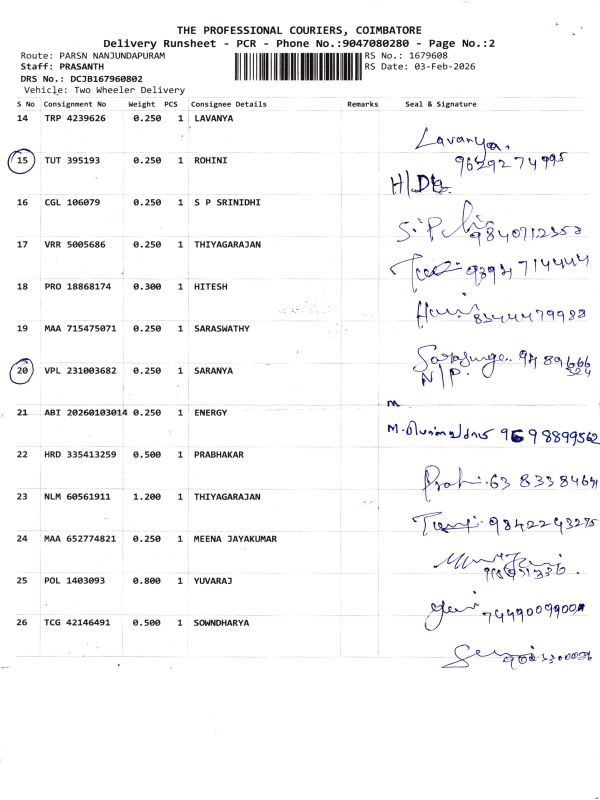 THE PROFESSIONAL COURIERS, COIMBATORE
Delivery Runsheet - PCR - Phone No.:9047080280 - Page No.:2
Route: PARSN NANJUNDAPURAM RS No.: 1679608
Staff: PRASANTH RS Date: 03-Feb-2026
DRS No.: DCJB167960802
Vehicle: Two Wheeler Delivery
S No Consignment No Weight PCS Consignee Details Remarks Seal & Signature
14 TRP 4239626 0.250 1 LAVANYA
Lavanya.
15 TUT 395193 0.250 1 ROHINI
16 CGL 106079 0.250 1 S P SRINIDHI
17 VRR 5005686 0.250 1 THIYAGARAJAN
18 PRO 18868174 0.300 1 HITESH
19 MAA 715475071 0.250 1 SARASWATHY
20 VPL 231003682 0.250 1 SARANYA
N/P.
21 ABI 20260103014 0.250 1 ENERGY
9698899562
22 HRD 335413259 0.500 1 PRABHAKAR
23 NLM 60561911 1.200 1 THIYAGARAJAN
9842243275
24 MAA 652774821 0.250 1 MEENA JAYAKUMAR
25 POL 1403093 0.800 1 YUVARAJ
26 TCG 42146491 0.500 1 SOWNDHARYA